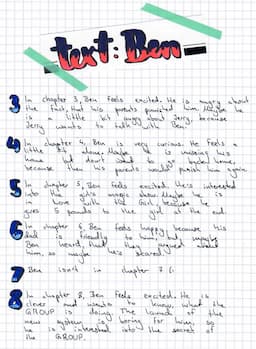 text: Ben
3 In chapter 3, Ben feels excited. He is angry about
the fact, that his parents punished him. Maybe he
is a little bit angry about Jerry, because
Jerry wants to talk with Ben.
4 In chapter 4, Ben is very curious. He feels a
little bit alone. Maybe he is missing his
home but don't want to go back home,
because then his parents would punish him again.
5 In chapter 5, Ben feels excited. He's interested
into girl's shoes. Maybe he is
in love with the Girl, because he
gives 5 pounds to the girl at the end
6 In chapter 6, Ben feels happy because his
dad is friendly to him, but maybe
Ben heard, that they argued about
him, so maybe he's scared.
7 Ben isn't in chapter 7 (:
8 In chapter 8, Ben feels excited. He is
clever and wants to know, what the
GROUP is doing. The launch of the
new system is boring for him, so
he is interested into the secret of
the GROUP.